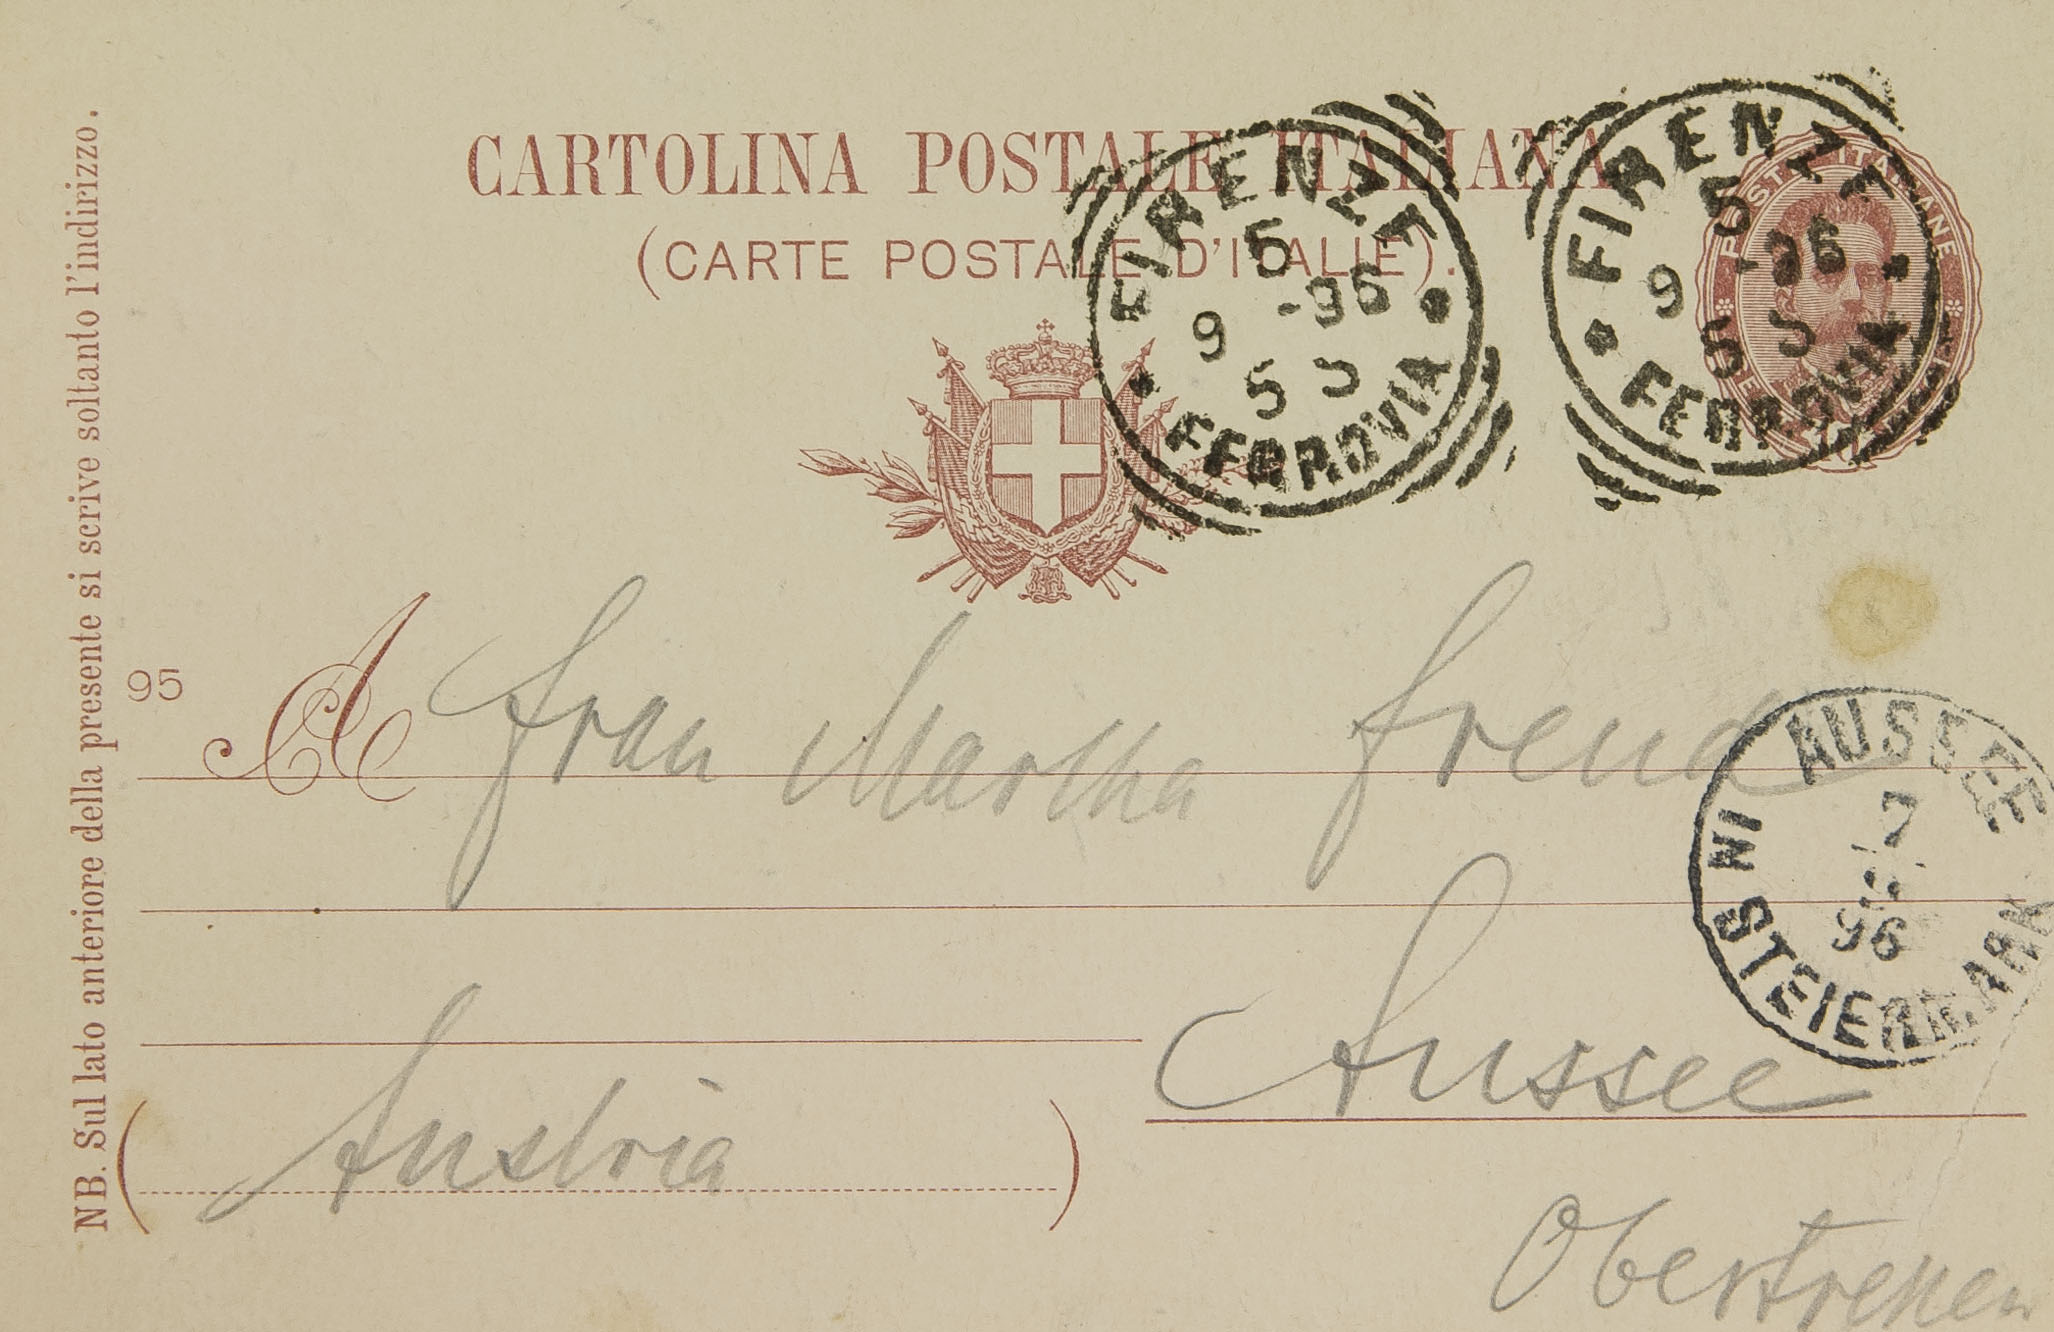 CARTOLINA POSTALE ITALIANA
(CARTE POSTALE D'ITALIE).
FIRENZE
5
9 -96
5 S
FERROVIA
FIRENZE
5
9 -96
5 S
FERROVIA
POSTE ITALIANE
NB. Sul lato anteriore della presente si scrive soltanto l'indirizzo.
95
A Frau Martha Freud
AUSSEE
7
96
IN STEIERMARK
Aussee
Austria
Obertressen